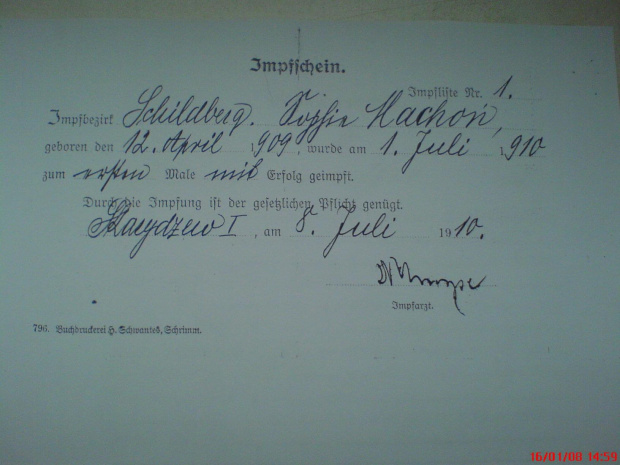 Impfschein.
Impfliste Nr. 1.
Impfbezirk Schildberg. Sophie Machoń,
geboren den 12. April 1909, wurde am 1. Juli 1910
zum ersten Male mit Erfolg geimpft.
Durch die Impfung ist der gesetzlichen Pflicht genügt.
I, am 8. Juli 1910.
Impfarzt.
796. Buchdruckerei H. Schwantes, Schrimm.
16/01/08 14:59